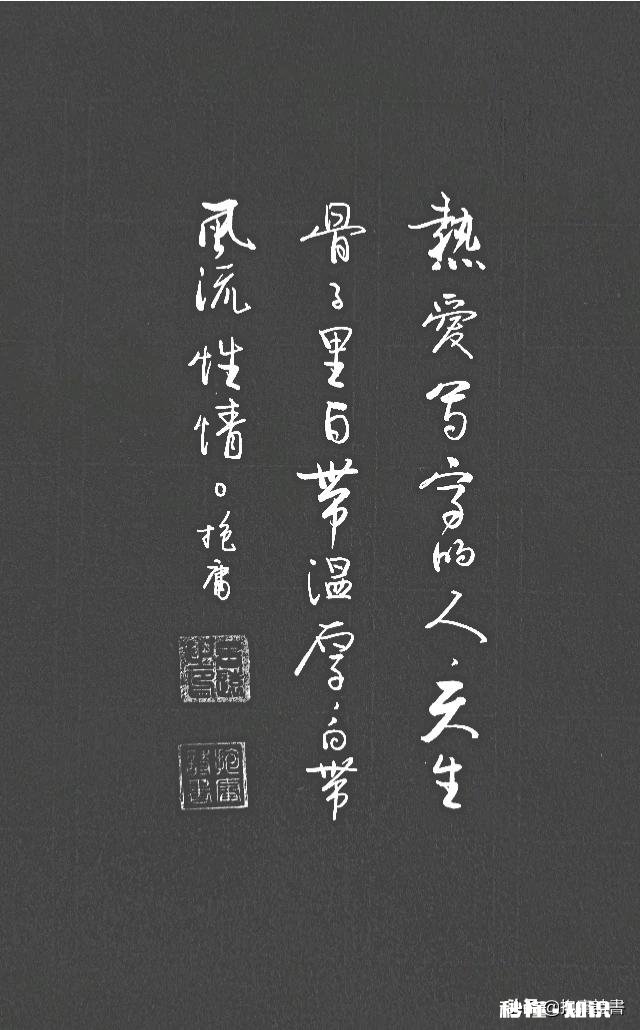 熱愛写字的人、天生
骨子里自带温厚、自带
風流性情。抱庸
秒懂·知识